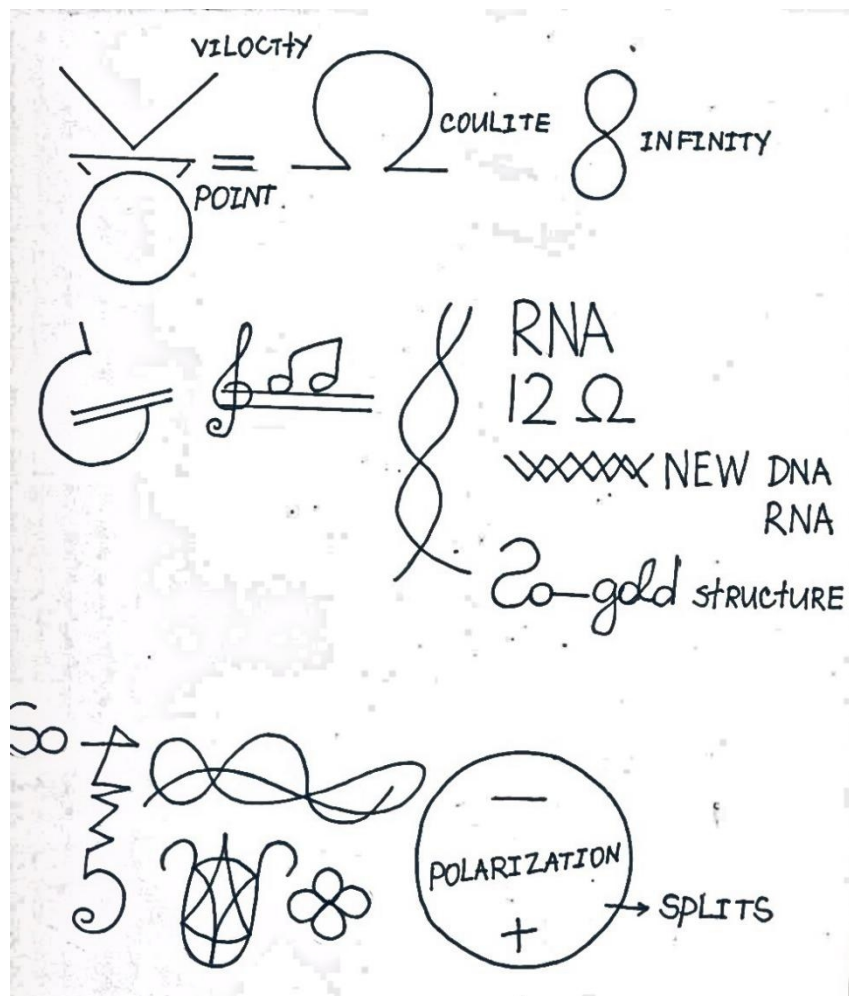 VILOCITY
COULITE
INFINITY
POINT.
RNA
12 Ω
NEW DNA
RNA
So-gold structure
So
POLARIZATION
SPLITS